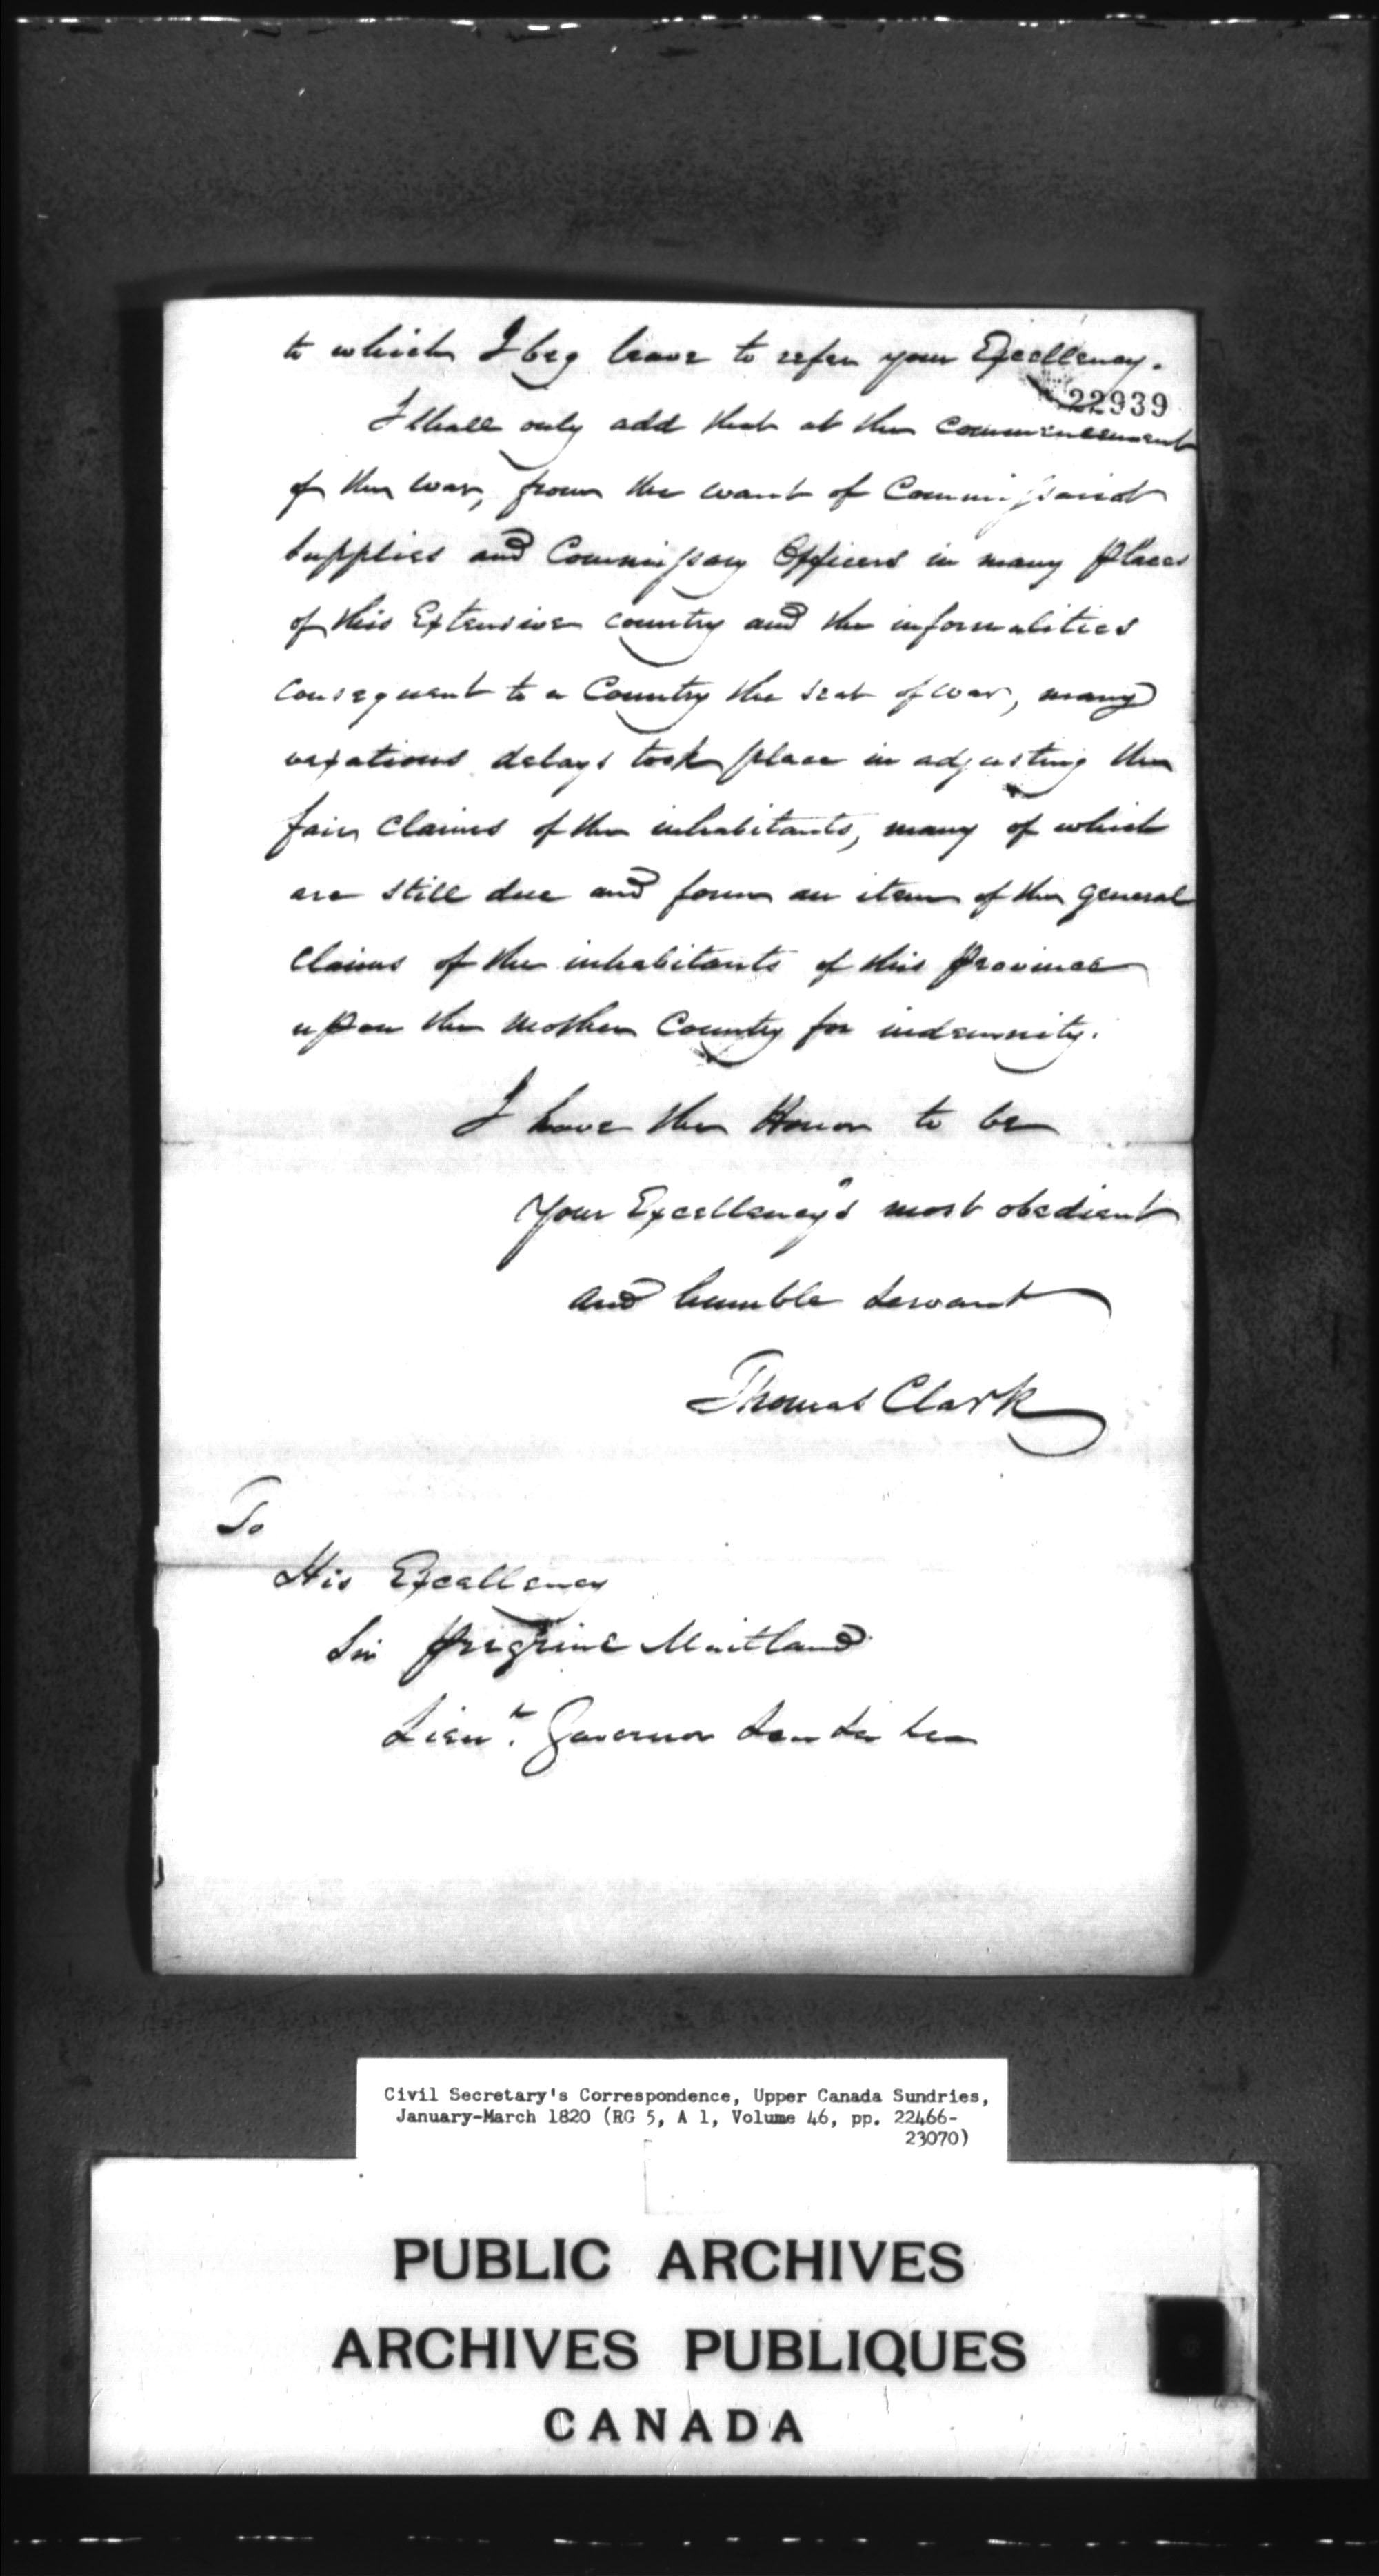 to which I beg leave to refer your Excellency.
22939
I shall only add that at the commencement
of the war, from the want of Commissariat
supplies and Commissary Officers in many places
of this Extensive country and the informalities
consequent to a Country the seat of war, many
vexatious delays took place in adjusting the
fair Claims of the inhabitants, many of which
are still due and form an item of the general
Claims of the inhabitants of this province
upon the Mother Country for indemnity.
I have the Honor to be
Your Excellency's most obedient
and humble Servant
Thomas Clark
To
His Excellency
Sir Peregrine Maitland
Lieut. Governor
Civil Secretary's Correspondence, Upper Canada Sundries,
January-March 1820 (RG 5, A 1, Volume 46, pp. 22466-
23070)
PUBLIC ARCHIVES
ARCHIVES PUBLIQUES
CANADA